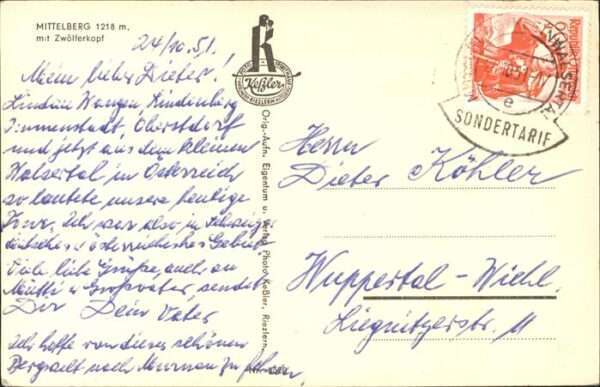 MITTELBERG 1218 m,
mit Zwölferkopf
24/10.51.
Mein lieber Dieter!
Lindau Wangen, Lindenberg
Immenstadt, Oberstdorf
und jetzt aus dem kleinen
Walsertal in Österreich
so lautete unsere heutige
Tour. Ich war also in
deutsches u österreichisches Gebiet
Viele liebe Grüße, auch an
Mutti u Großvater, sendet
Dir Dein Vater
Ich hoffe von dieser schönen
Bergwelt nach Murnau zu fahren.
Keßler
Orig.-Aufn. Eigentum u. Verlag Photo Keßler, Riezlern
Herrn
Dieter Köhler
Wuppertal-Wichl.
Liegnitzerstr. 11
Republik
e
SONDERTARIF